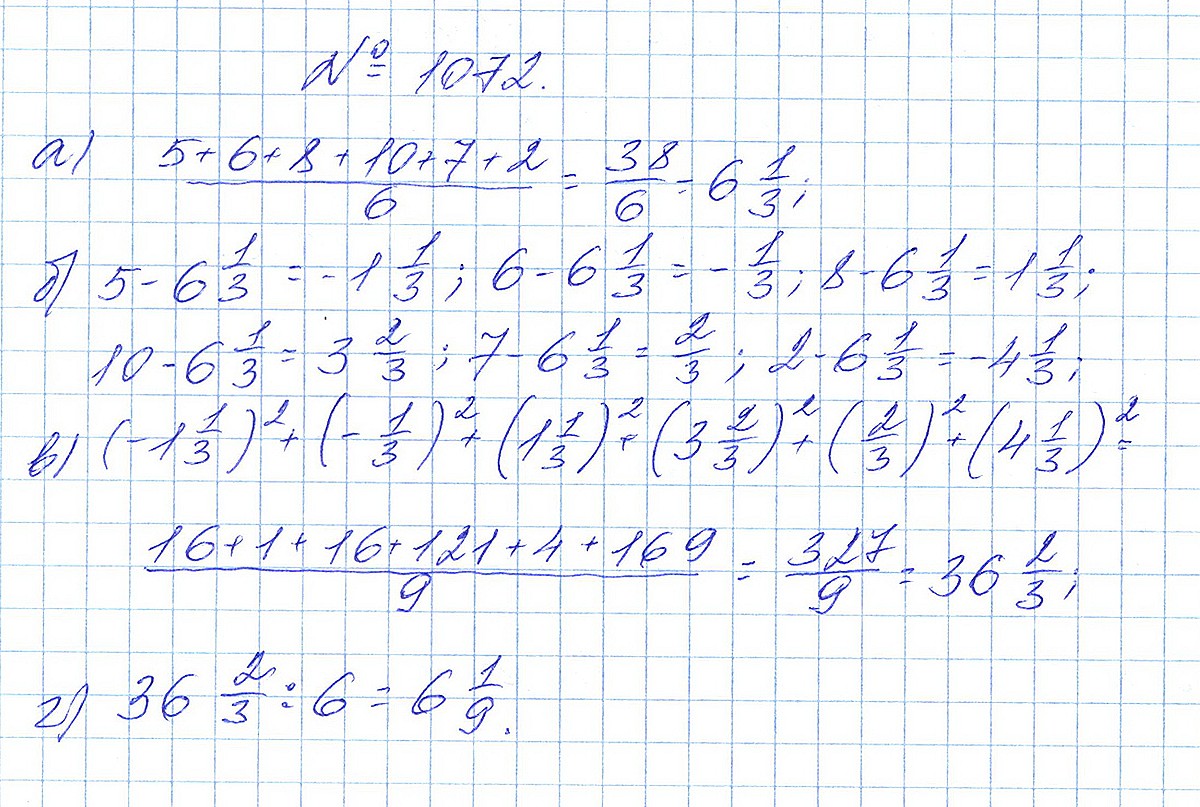 № 1072.
а) (5+6+8+10+7+2)/6 = 38/6 = 6 1/3;
б) 5 - 6 1/3 = -1 1/3; 6 - 6 1/3 = - 1/3; 8 - 6 1/3 = 1 1/3;
10 - 6 1/3 = 3 2/3; 7 - 6 1/3 = 2/3; 2 - 6 1/3 = -4 1/3;
в) (-1 1/3)² + (- 1/3)² + (1 1/3)² + (3 2/3)² + (2/3)² + (4 1/3)² =
(16+1+16+121+4+169)/9 = 327/9 = 36 2/3;
г) 36 2/3 : 6 = 6 1/9.